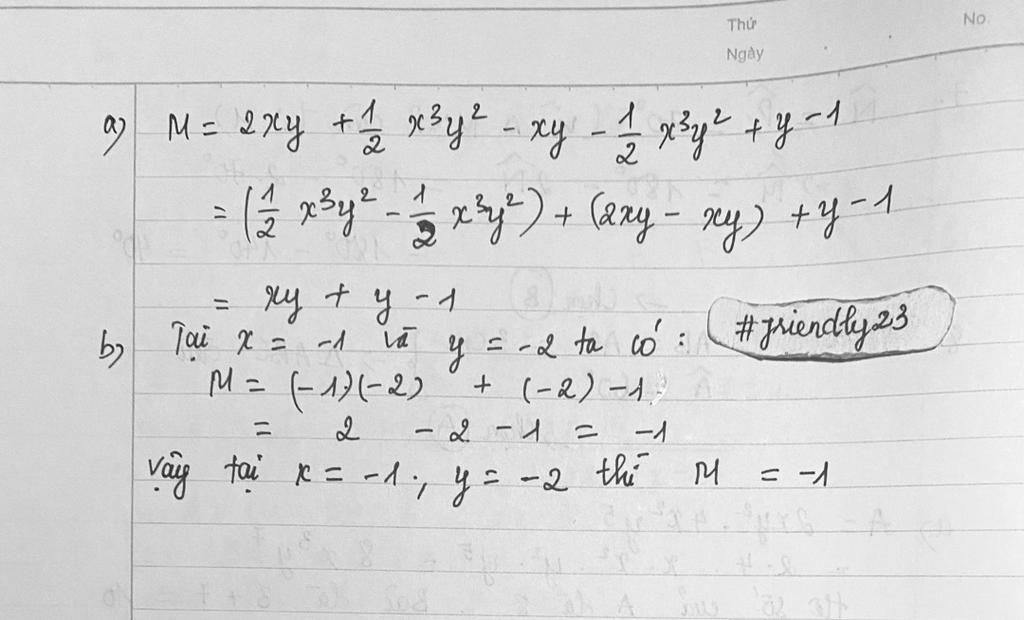 Thứ
No
Ngày
a) M = 2xy + 1/2 x³y² - xy - 1/2 x³y² + y - 1
= (1/2 x³y² - 1/2 x³y²) + (2xy - xy) + y - 1
= xy + y - 1
b) Tại x = -1 và y = -2 ta có : #friendly23
M = (-1)(-2) + (-2) - 1
= 2 - 2 - 1 = -1
Vậy tại x = -1 ; y = -2 thì M = -1